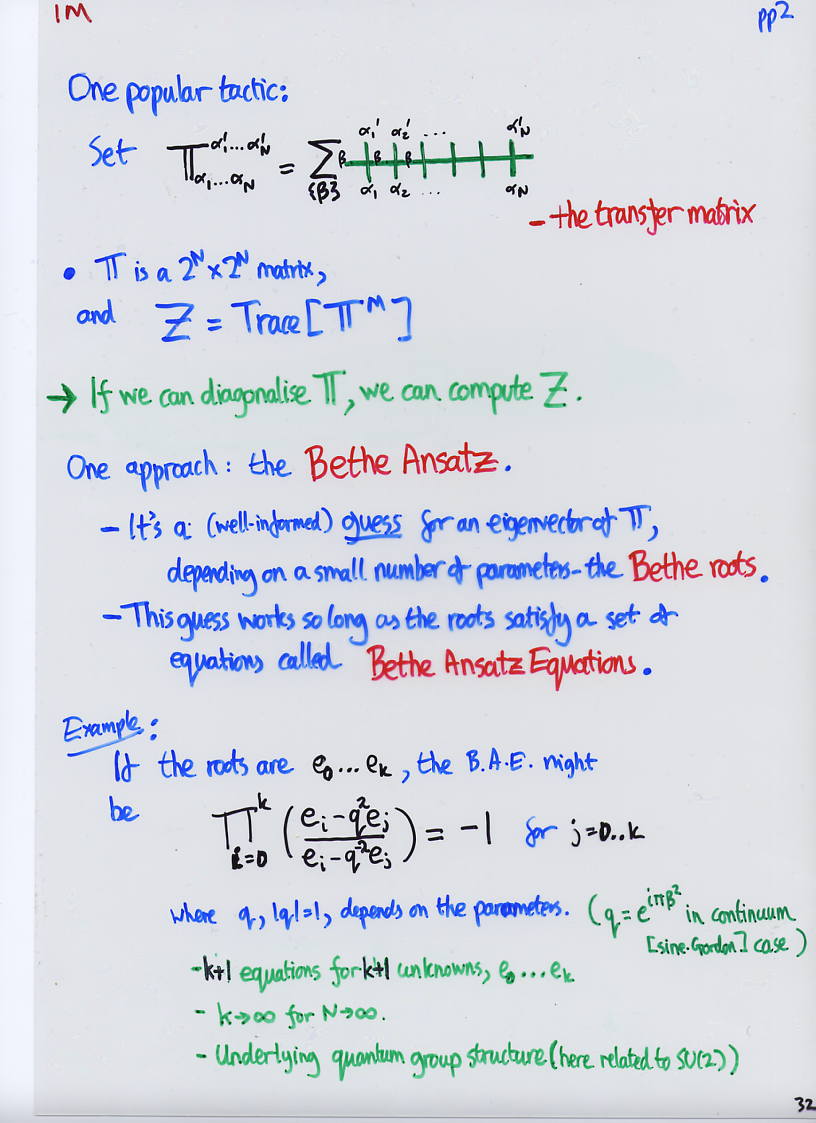 1M
pp2
One popular tactic:
α₁' α₂' ... α'N
Set 𝕋^{α₁'...α'N}_{α₁...αN} = Σ_{{β}} β β β
α₁ α₂ ... αN
- the transfer matrix
• 𝕋 is a 2^N × 2^N matrix,
and Z = Trace[𝕋^M]
→ If we can diagonalise 𝕋, we can compute Z.
One approach: the Bethe Ansatz.
- It's a (well-informed) guess for an eigenvector of 𝕋,
depending on a small number of parameters - the Bethe roots.
- This guess works so long as the roots satisfy a set of
equations called Bethe Ansatz Equations.
Example:
If the roots are e₀...e_k, the B.A.E. might
be ∏_{i=0}^{k} ((e_i - q²e_j)/(e_i - q⁻²e_j)) = -1 for j=0..k
where q, |q|=1, depends on the parameters. (q = e^{iπβ²} in continuum
[sine-Gordon] case)
- k+1 equations for k+1 unknowns, e₀...e_k
- k→∞ for N→∞.
- Underlying quantum group structure (here related to SU(2))
32